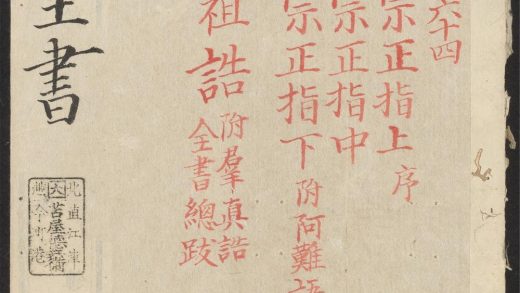 六十四
宗正指上 序
宗正指中
宗正指下 附阿難
祖誥 附羣真誥
全書總跋
全書
六
苫屋